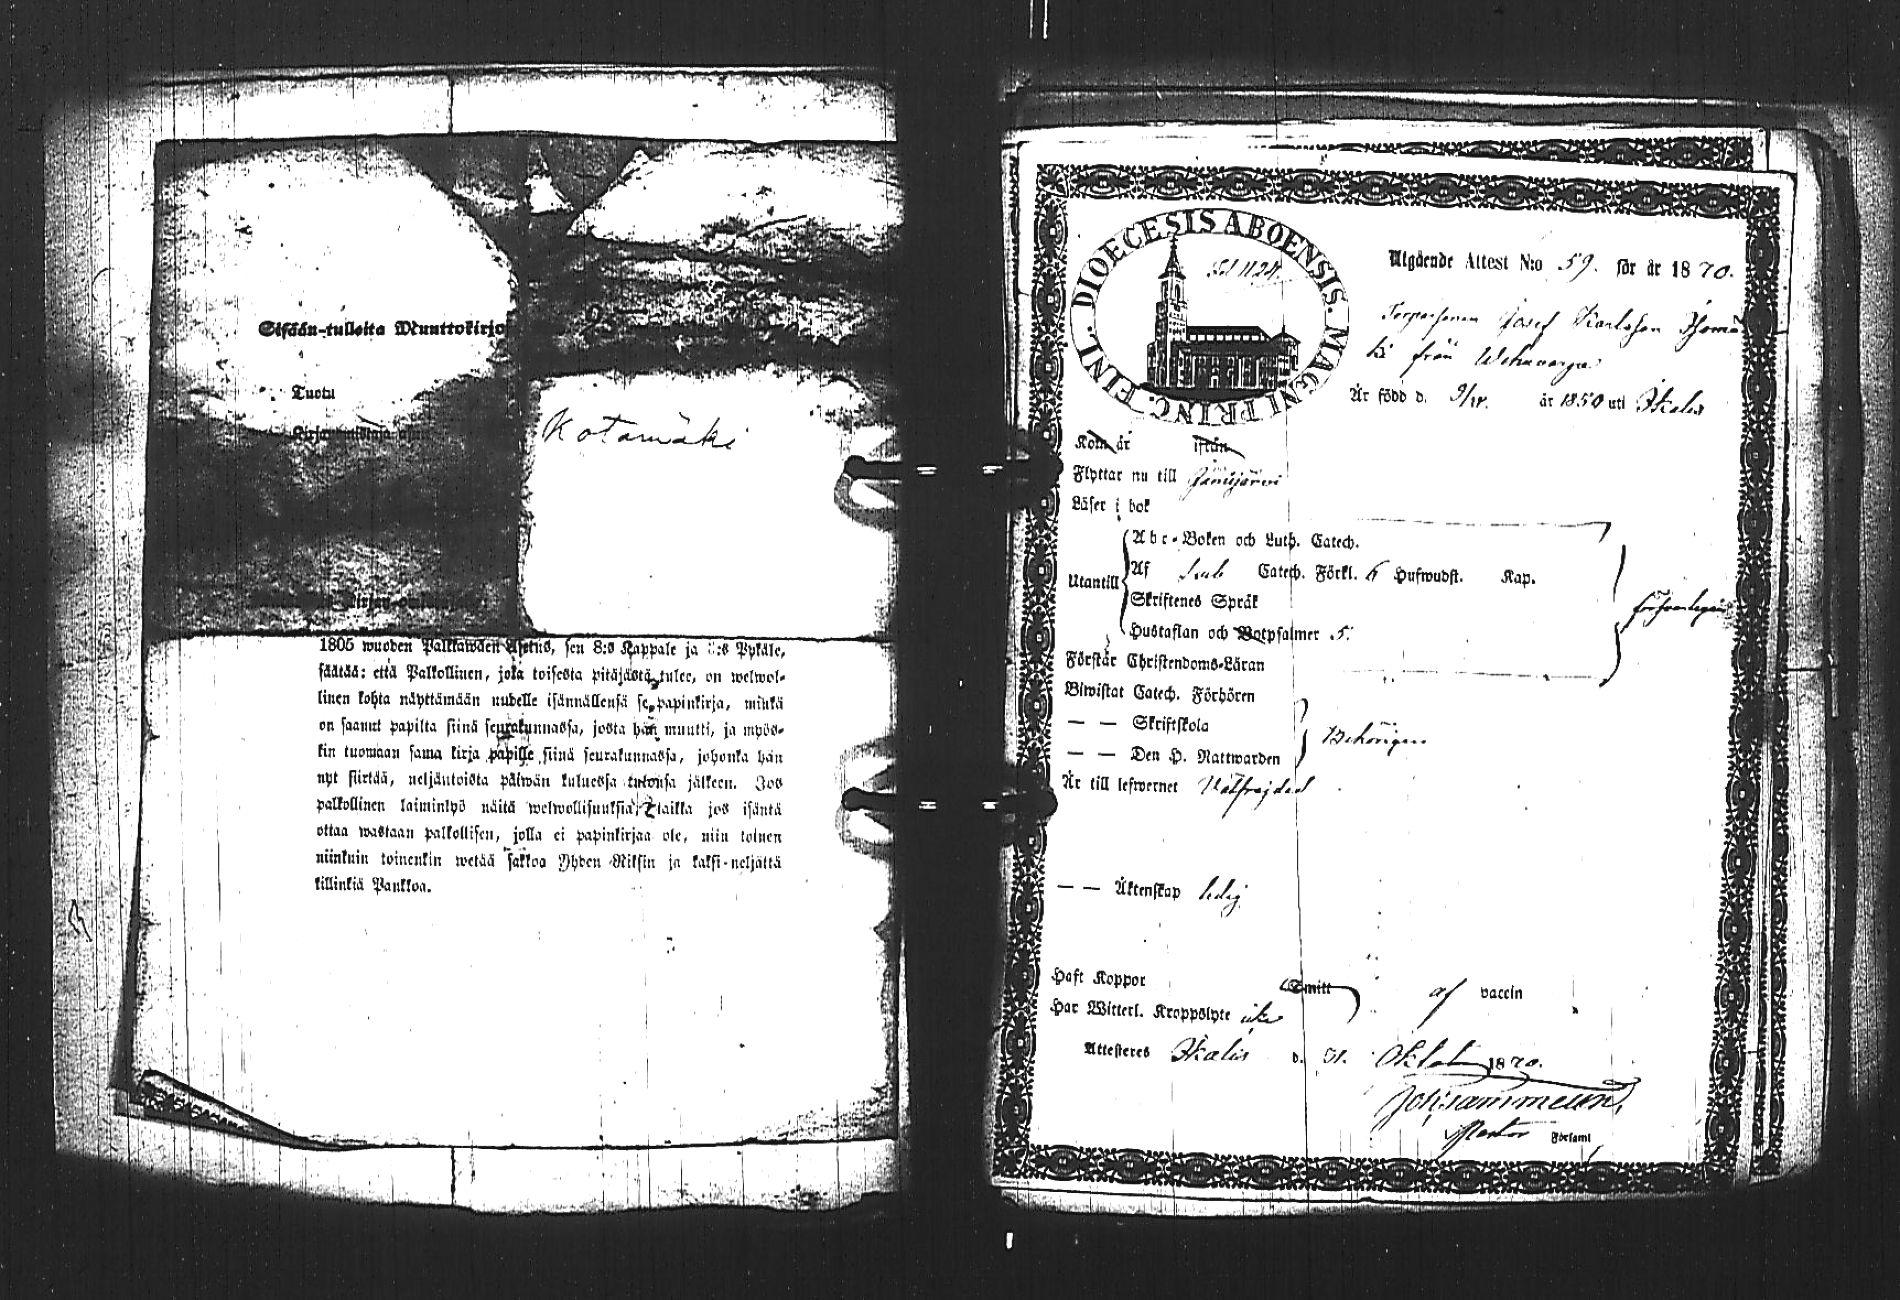 Sisään-tulleita Muuttokirjo
Tuotu
Kotamäki
1805 wuoden Palkkawäen Asetus, sen 8:s Kappale ja :s Pykäle,
säätää: että Palkollinen, joka toisesta pitäjästä tulee, on welwol-
linen kohta näyttämään uudelle isännällensä se papinkirja, minkä
on saanut papilta siinä seurakunnassa, josta hän muutti, ja myös-
kin tuomaan sama kirja papille siinä seurakunnassa, johonka hän
nyt siirtää, neljäntoista päiwän kuluessa tulonsa jälkeen. Jos
palkollinen laiminlyö näitä welwollisuuksia, taikka jos isäntä
ottaa wastaan palkollisen, jolla ei papinkirjaa ole, niin toinen
niinkuin toinenkin wetää sakkoa Yhden Riksin ja kaksi-neljättä
killinkiä Pankkoa.
DIOECESIS ABOENSIS. MAGNI PRINC. FINL.
Utgående Attest N:o 59. för år 1870.
Josef Karlsson
från
Är född d. 9/ år 1850 uti Ikalis
Kom år ifrån
Flyttar nu till Jämijärvi
Läser i bok
Abc-Boken och Luth. Catech.
Utantill Af Catech. Förkl. 6 Hufwudst. Kap.
Skriftenes Språk
Hustaflan och Botpsalmer 5.
Förstår Christendoms-Läran
Biwistat Catech. Förhören
— — Skriftskola
Behörigen
— — Den H. Nattwarden
Är till lefwernet Välfrejdad
— — Äktenskap ledig
Haft Koppor Smitt af vaccin
Har Witterl. Kroppslyte icke
Attesteres Ikalis d. 31. Oktob 1870.
Joh. Sammelin,
Pastor Församl